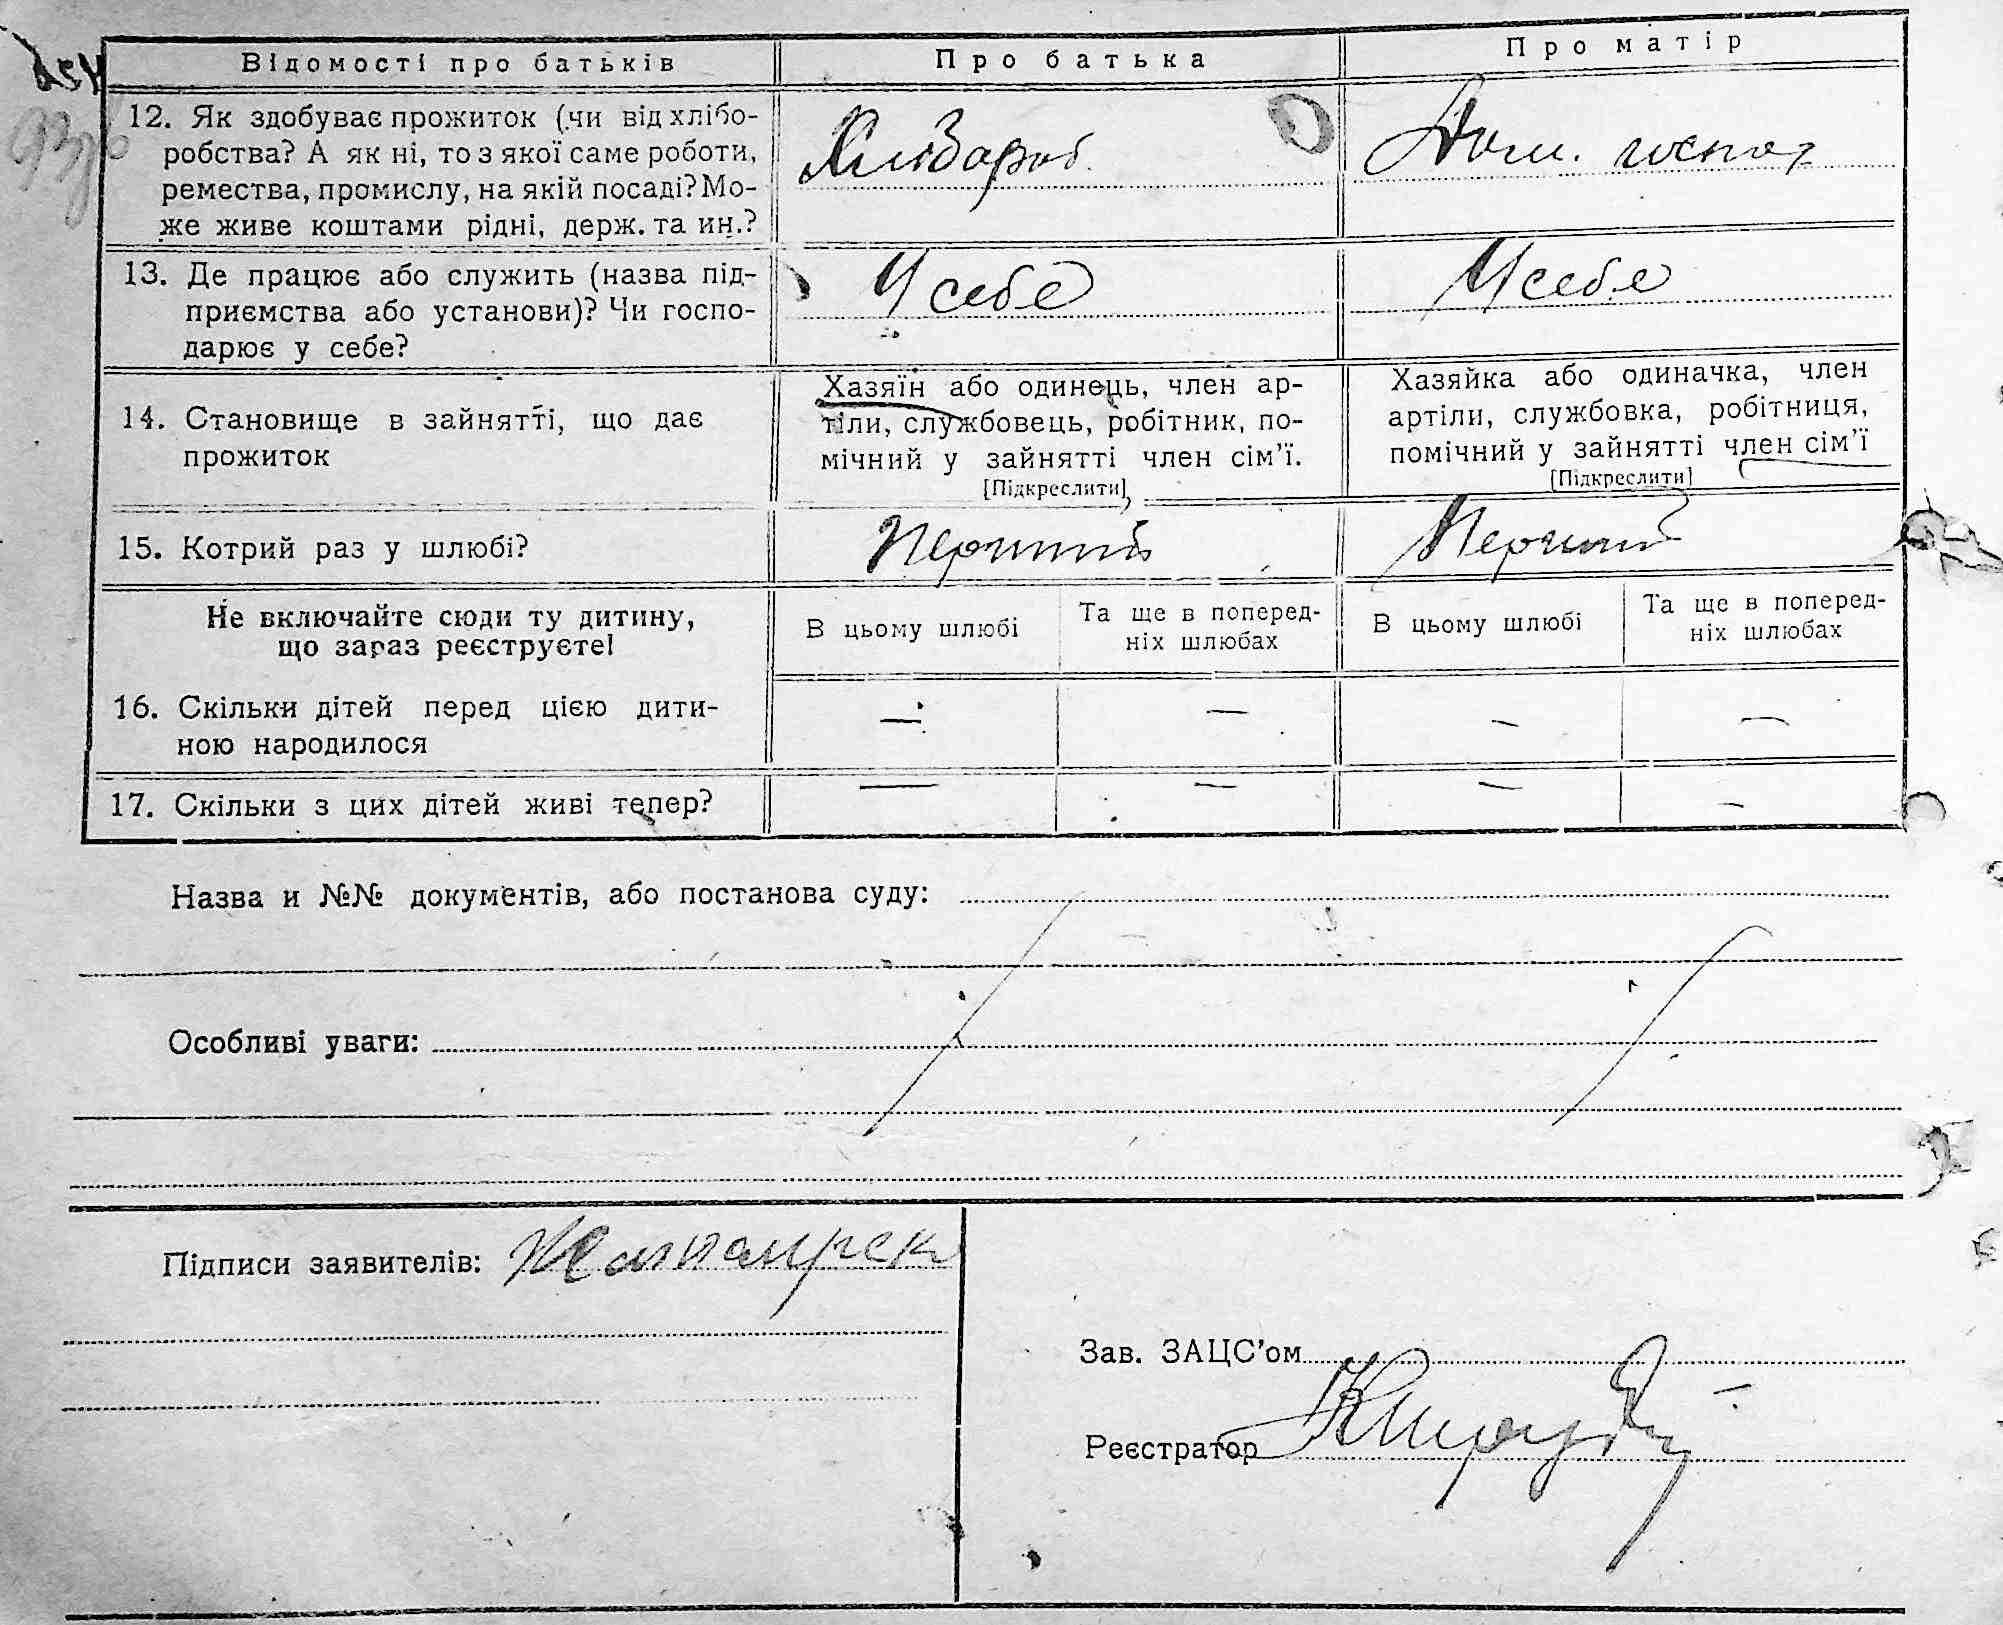 Відомості про батьків Про батька Про матір
12. Як здобуває прожиток (чи від хлібо-
робства? А як ні, то з якої саме роботи,
ремества, промислу, на якій посаді? Мо-
же живе коштами рідні, держ. та ин.?
Хлібороб Дом. господ
13. Де працює або служить (назва під-
приємства або установи)? Чи госпо-
дарює у себе?
У себе У себе
14. Становище в зайнятті, що дає
прожиток
Хазяїн або одинець, член ар-
тіли, службовець, робітник, по-
мічний у зайнятті член сім'ї.
[Підкреслити]
Хазяйка або одиначка, член
артіли, службовка, робітниця,
помічний у зайнятті член сім'ї
[Підкреслити]
15. Котрий раз у шлюбі? Перший Перший
Не включайте сюди ту дитину,
що зараз реєструєте!
В цьому шлюбі
Та ще в поперед-
ніх шлюбах
В цьому шлюбі
Та ще в поперед-
ніх шлюбах
16. Скільки дітей перед цією дити-
ною народилося
— — — —
17. Скільки з цих дітей живі тепер?
— — — —
Назва и №№ документів, або постанова суду:
Особливі уваги:
Підписи заявителів:
Зав. ЗАЦС'ом
Реєстратор